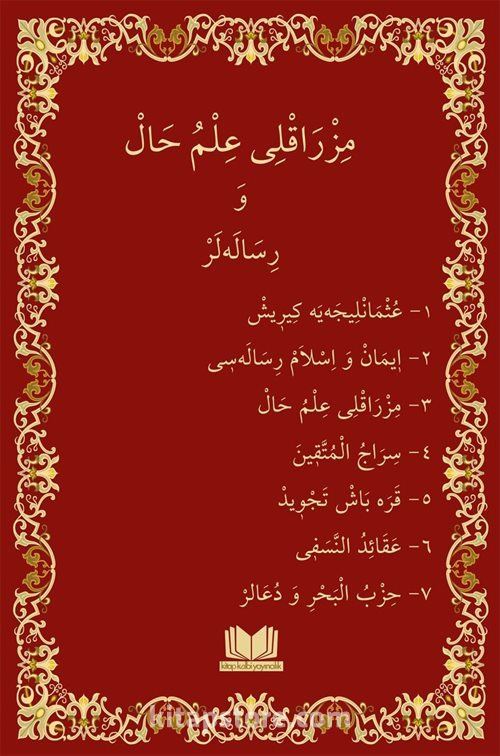 مِزْرَاقْلِى عِلْمُ حَالْ
وَ
رِسَالَەلَرْ
١- عُثْمَانْلِيجَەيَە كِيرِيشْ
٢- اِيمَانْ وَ اِسْلَامْ رِسَالَەسِى
٣- مِزْرَاقْلِى عِلْمُ حَالْ
٤- سِرَاجُ الْمُتَّقِينَ
٥- قَرَە بَاشْ تَجْوِيدْ
٦- عَقَائِدُ النَّسَفِى
٧- حِزْبُ الْبَحْرِ وَ دُعَالَرْ
kitap kalbi yayıncılık
kitapstore.com